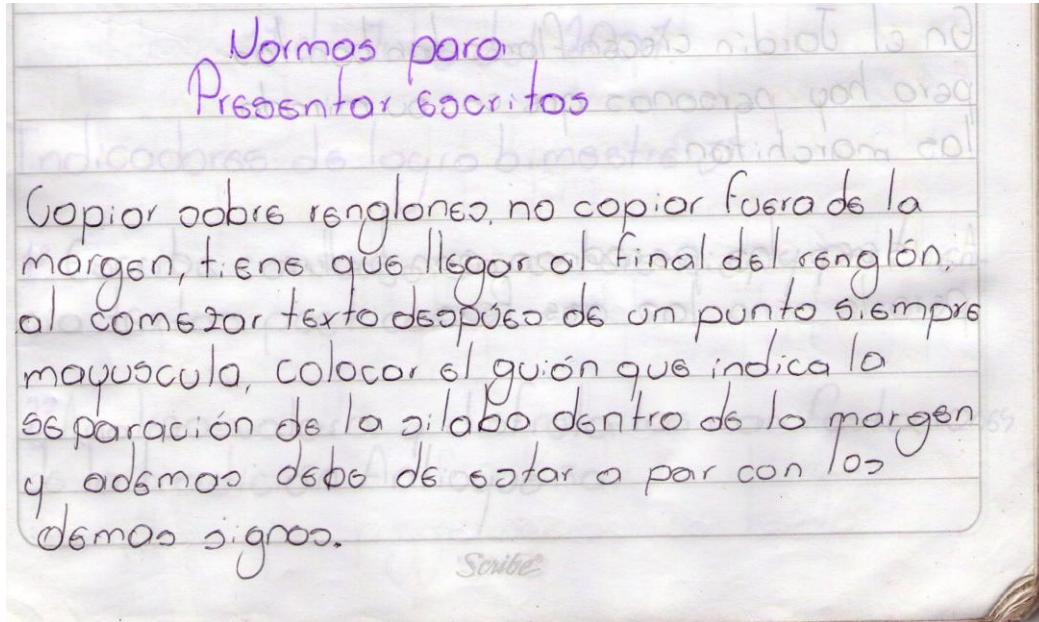 Normas para
Presentar escritos
Copiar sobre renglones, no copiar fuera de la
margen, tiene que llegar al final del renglón,
al comezar texto despúes de un punto siempre
mayuscula, colocar el guión que indica la
separación de la silaba dentro de la margen
y ademas debe de estar a par con los
demas signos.
Scribe